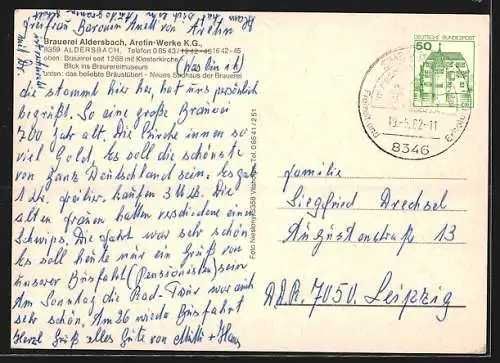 Freifrau Baronin Anett von Aretin
Brauerei Aldersbach, Aretin-Werke K.G.,
8359 ALDERSBACH, Telefon 08543/ 16 42-45
oben: Brauerei seit 1268 mit Klosterkirche
Blick ins Brauereimuseum
unten: das beliebte Bräustüberl - Neues Sudhaus der Brauerei
(das bin ich)
die stammt hier her, hat uns persönlich
begrüßt. So eine große Brauerei
700 Jahr alt. Die Kirche innen so
viel Gold. Es soll die schönste
von Ganz Deutschland sein. Es gab
1 Std. freibier. kaufen 3 M. Die
alten frauen hatten verschiedene einen
Schwips. Die fahrt war sehr schön.
Es soll heute nur ein Gruß von
unserer Busfahrt (Pensionisten) sein
Am Sonntag die Rad-Tour war auch
sehr schön. Am 26 wieder Busfahrt
Herzl Grüß alles Gute von Mitti + Hans
Foto Niestempf 8358 Vilshofen Tel. 08541/251
DEUTSCHE BUNDESPOST
50
8346
familie
Siegfried Drechsel
Augustenstraße 13
DDR. 7050. Leipzig